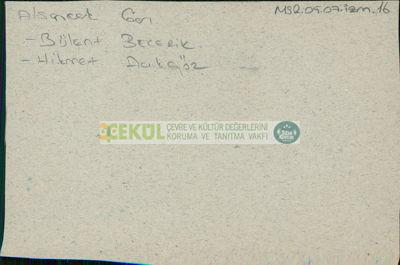 Alsancak Garı
MS2.09.07.İzm.16
- Bülent Becerik
- Hikmet Acıkgöz
ÇEKÜL
ÇEVRE VE KÜLTÜR DEĞERLERİNİ
KORUMA VE TANITMA VAKFI